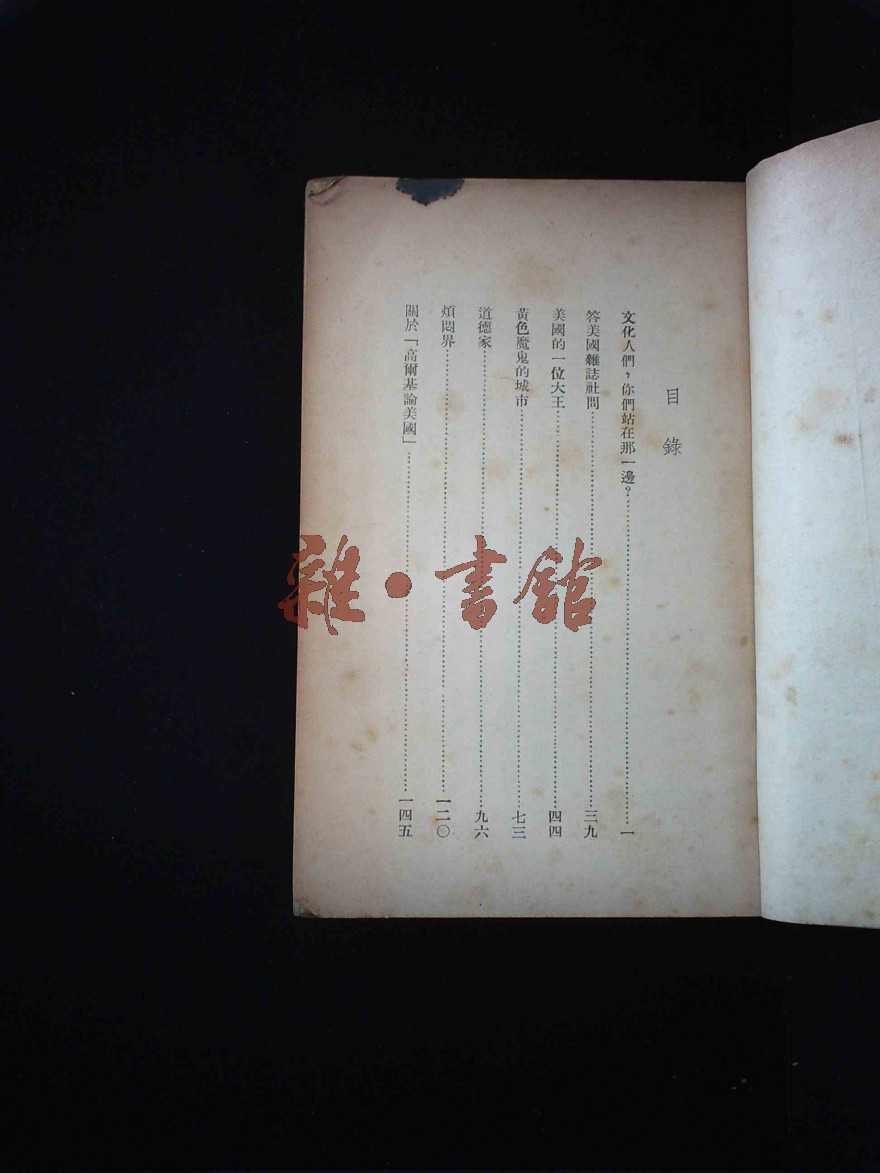 目錄
文化人們，你們站在那一邊？……一
答美國雜誌社問……三九
美國的一位大王……四四
黃色魔鬼的城市……七三
道德家……九六
煩悶界……一二〇
關於「高爾基論美國」……一四五
雜·書館